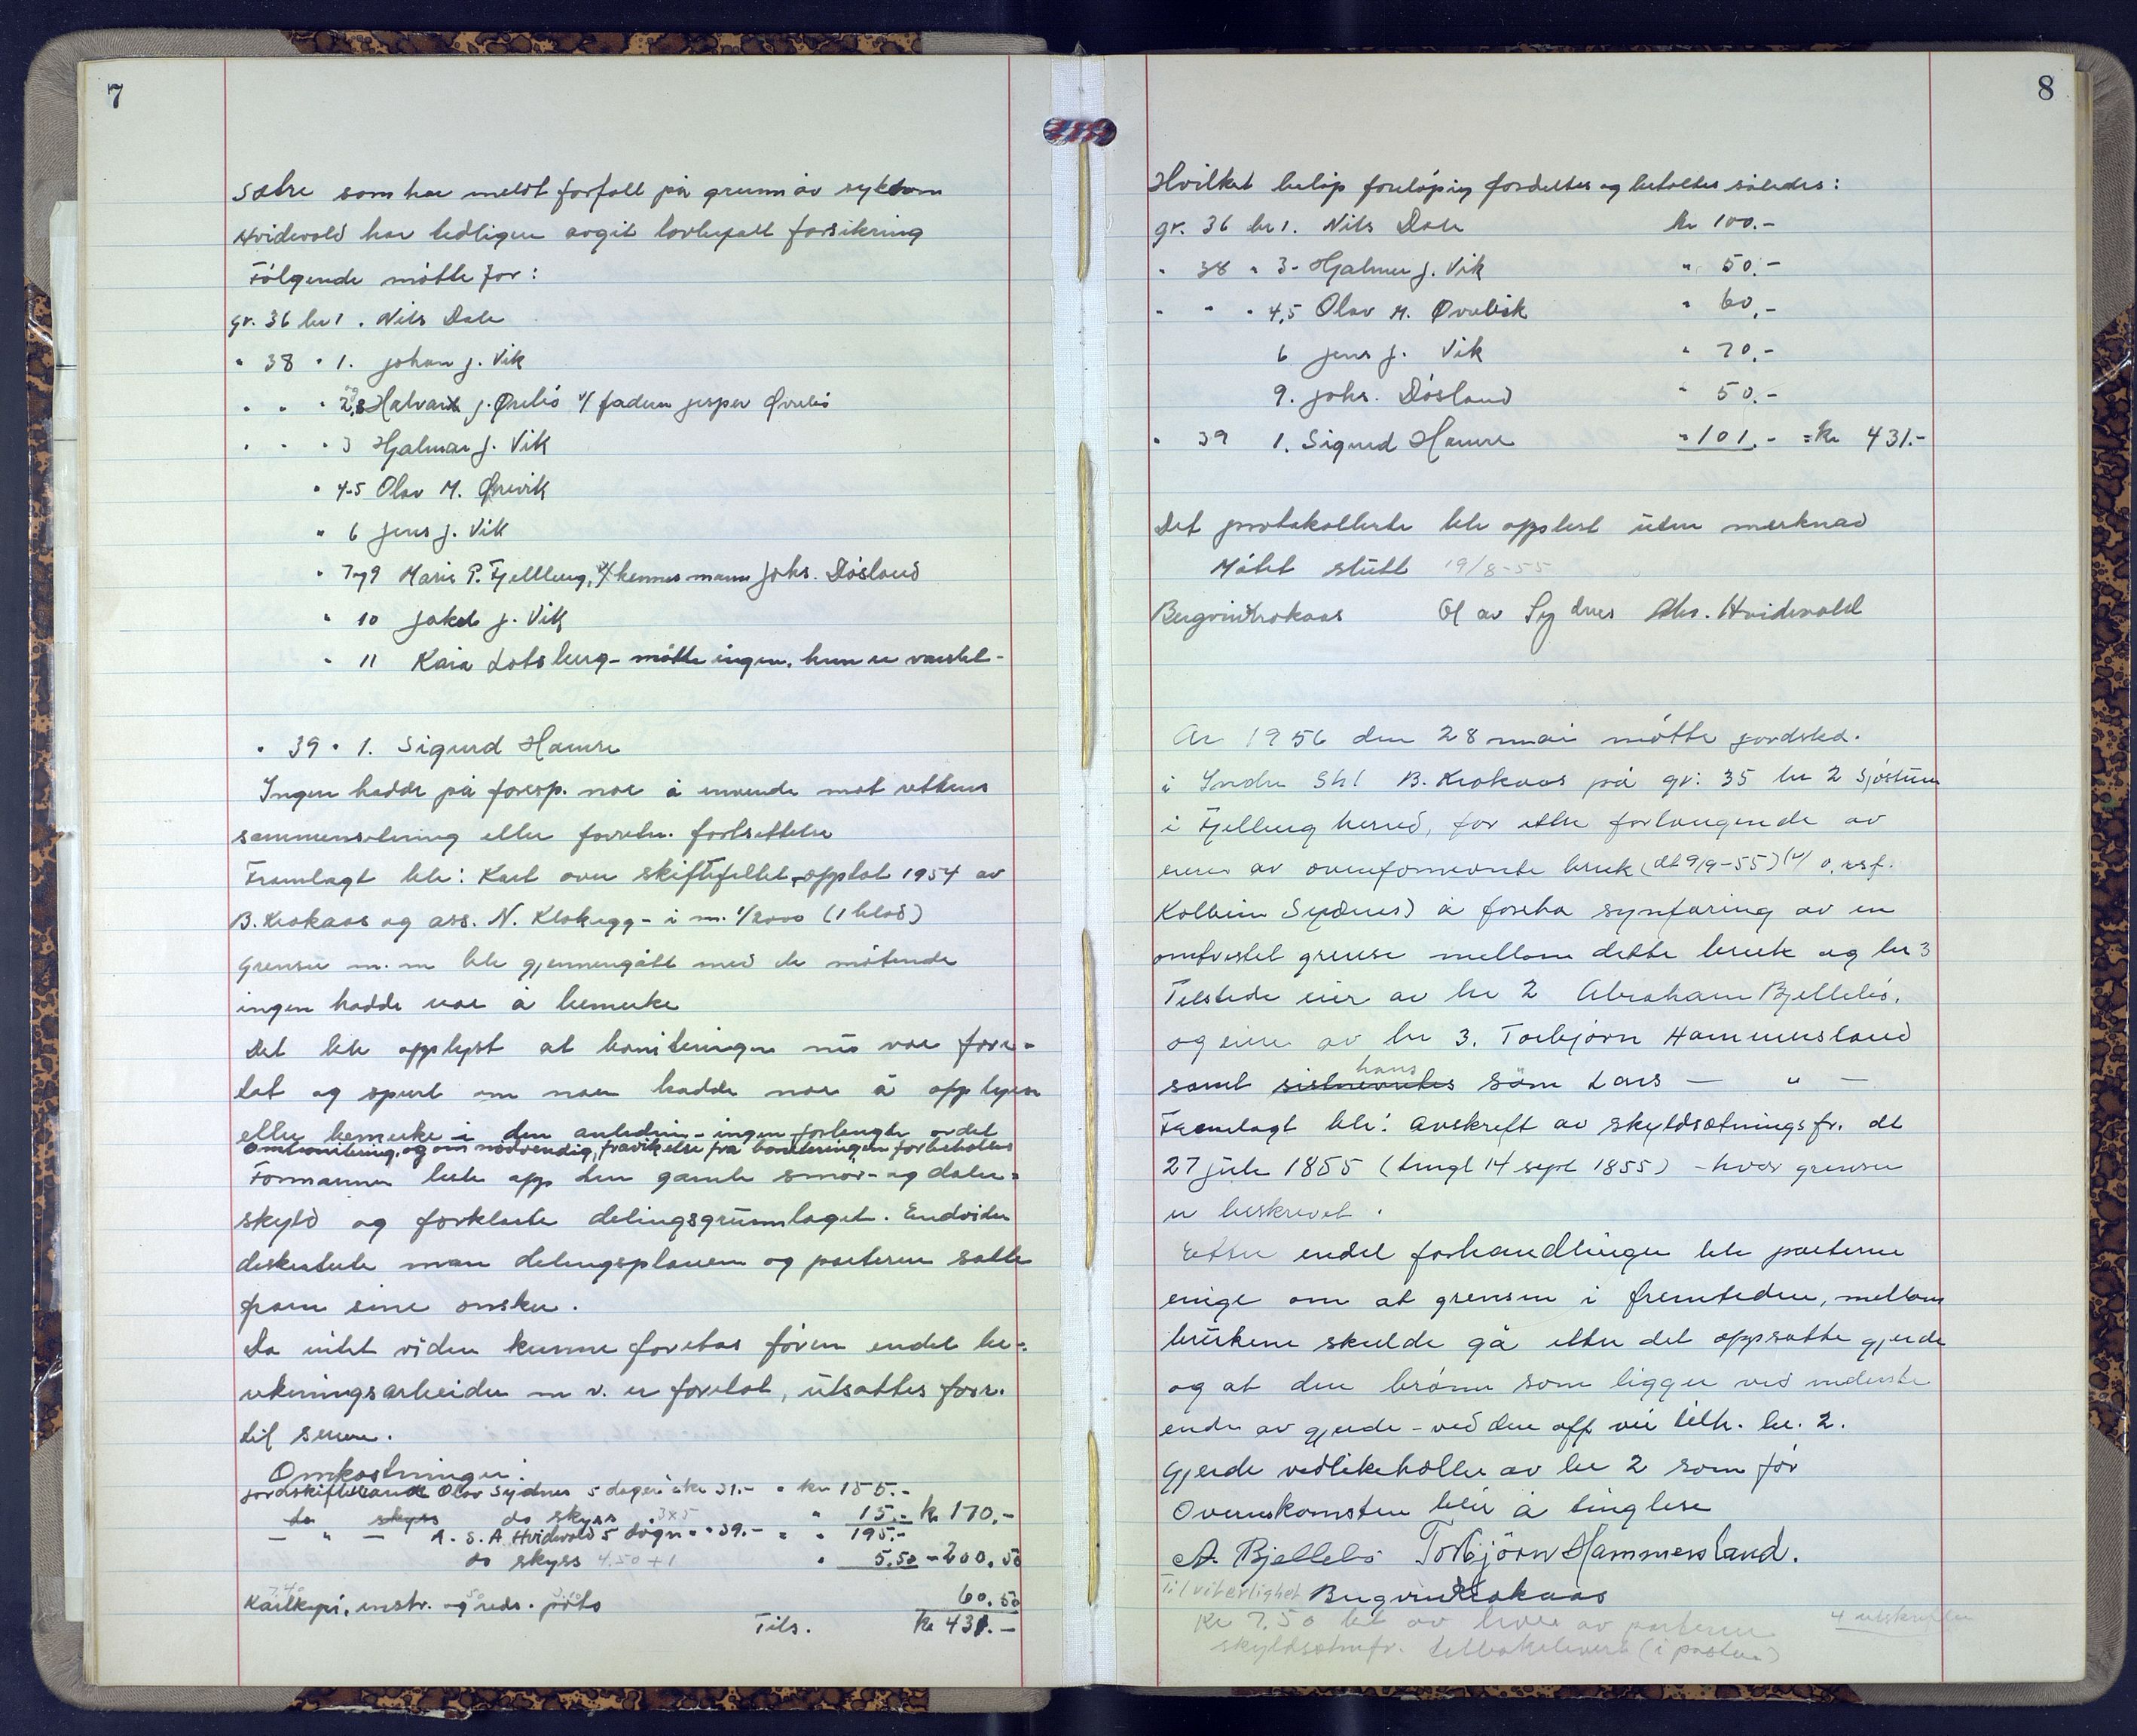 7
Sætre som har meldt forfall på grunn av sykdom
Hvidevold har tidligere avgit lovbefalt forsikring
Følgende møtte for:
gr. 36 br 1. Nils Dale
" 38 " 1. Johan J. Vik
" " " 2,8 Halvard J. Øvrebø v/ faderen Jesper Øvrebø
" " " 3 Hjalmar J. Vik
" 4-5 Olav M. Ørevik
" 6 Jens J. Vik
" 7 og 9 Marie P. Fjellberg, v/ hennes mann Johs. Døsland
" 10 Jakob J. Vik
" 11 Kaia Lotsberg - møtte ingen. hun er varslet -
" 39 " 1. Sigurd Hamre
Ingen hadde på foresp. noe å innvende mot rettens
sammensetning eller forretn. fortsettelse
Framlagt ble: Kart over skiftefeltet, opptat 1954 av
B. Krokaas og ass. N. Klokegg - i m. 1/2000 (1 blad)
Grenser m. m ble gjennemgått med de møtende
ingen hadde noe å bemerke
Det ble opplyst at boniteringen nu var fore-
tat og spurt om noen hadde noe å opplyse
eller bemerke i den anledning - ingen forlangte ordet
Ombonitering, og om nødvendig, fravikelse fra boniteringen forbeholdes
Formannen leste opp den gamle smør- og daler-
skyld og forklarte delingsgrunnlaget. Endvider
diskuterte man delingsplanen og parterne satte
fram sine ønsker.
Da intet videre kunne foretas føren endel be-
rekningsarbeider m v. er foretat, utsattes forr.
til senere.
Omkostninger:
Jordskiftemand Olav Sydnes 5 dager à kr 31.- = kr 155.-
do skyss do skyss 3x5 " 15.- kr 170.-
— " — A. S. A Hvidevold 5 døgn " " 39.- = " 195.-
do skyss 4.50 + 1 " 5.50 - 200,50
Kartkopi, instr. og reds. porto 60,50
Tils. kr 431.-
8
Hvilket beløp foreløpig fordeltes og betaltes således:
gr. 36 br 1. Nils Dale kr 100.-
" 38 " 3 - Hjalmar J. Vik " 50.-
" " " 4,5 Olav M. Øvrebik " 60,-
6 Jens J. Vik " 70,-
9. Johs. Døsland " 50.-
" 39 1. Sigurd Hamre " 101.- = kr 431.-
Det protokollerte ble opplest uten merknad
Møtet slutt 19/8-55
Bergvin Krokaas Olav Sydnes Ahs. Hvidevold
År 1956 den 28 mai møtte jordskd.
i Indre Shl B. Krokaas på gr: 35 br 2 Sjøstun
i Fjelberg herred, for etter forlangende av
eieren av ovenfornevnte bruk (dt 9/9-55) (v/ o.rsf.
Kolbein Sydnes) å foreta synfaring av en
omtvistet grense mellom dette bruk og br 3
Tilstede eier av br 2 Abraham Bjellebø,
og eier av br 3. Torbjørn Hammersland
hans
samt sistnevntes søn Lars — " —
Framlagt ble: avskrift av skyldsetningsfr. dt
27 juli 1855 (tingl 14 sept 1855) - hvor grensen
er beskrevet.
Etter endel forhandlinger ble parterne
enige om at grensen i fremtiden, mellom
brukene skulde gå etter det oppsatte gjerde
og at den brønn som ligger ved nederste
ende av gjerde - ved den off. vei tilh. br. 2.
Gjerde vedlikeholdes av br 2 som før
Overenskomsten blir å tinglese
A. Bjellebø Torbjörn Hammersland.
Til vitterlighet Bergvin Krokaas
Kr 7,50 bet av hver av parterne 4 utskrifter
skyldsetnfr. tilbakelevert (i posten)